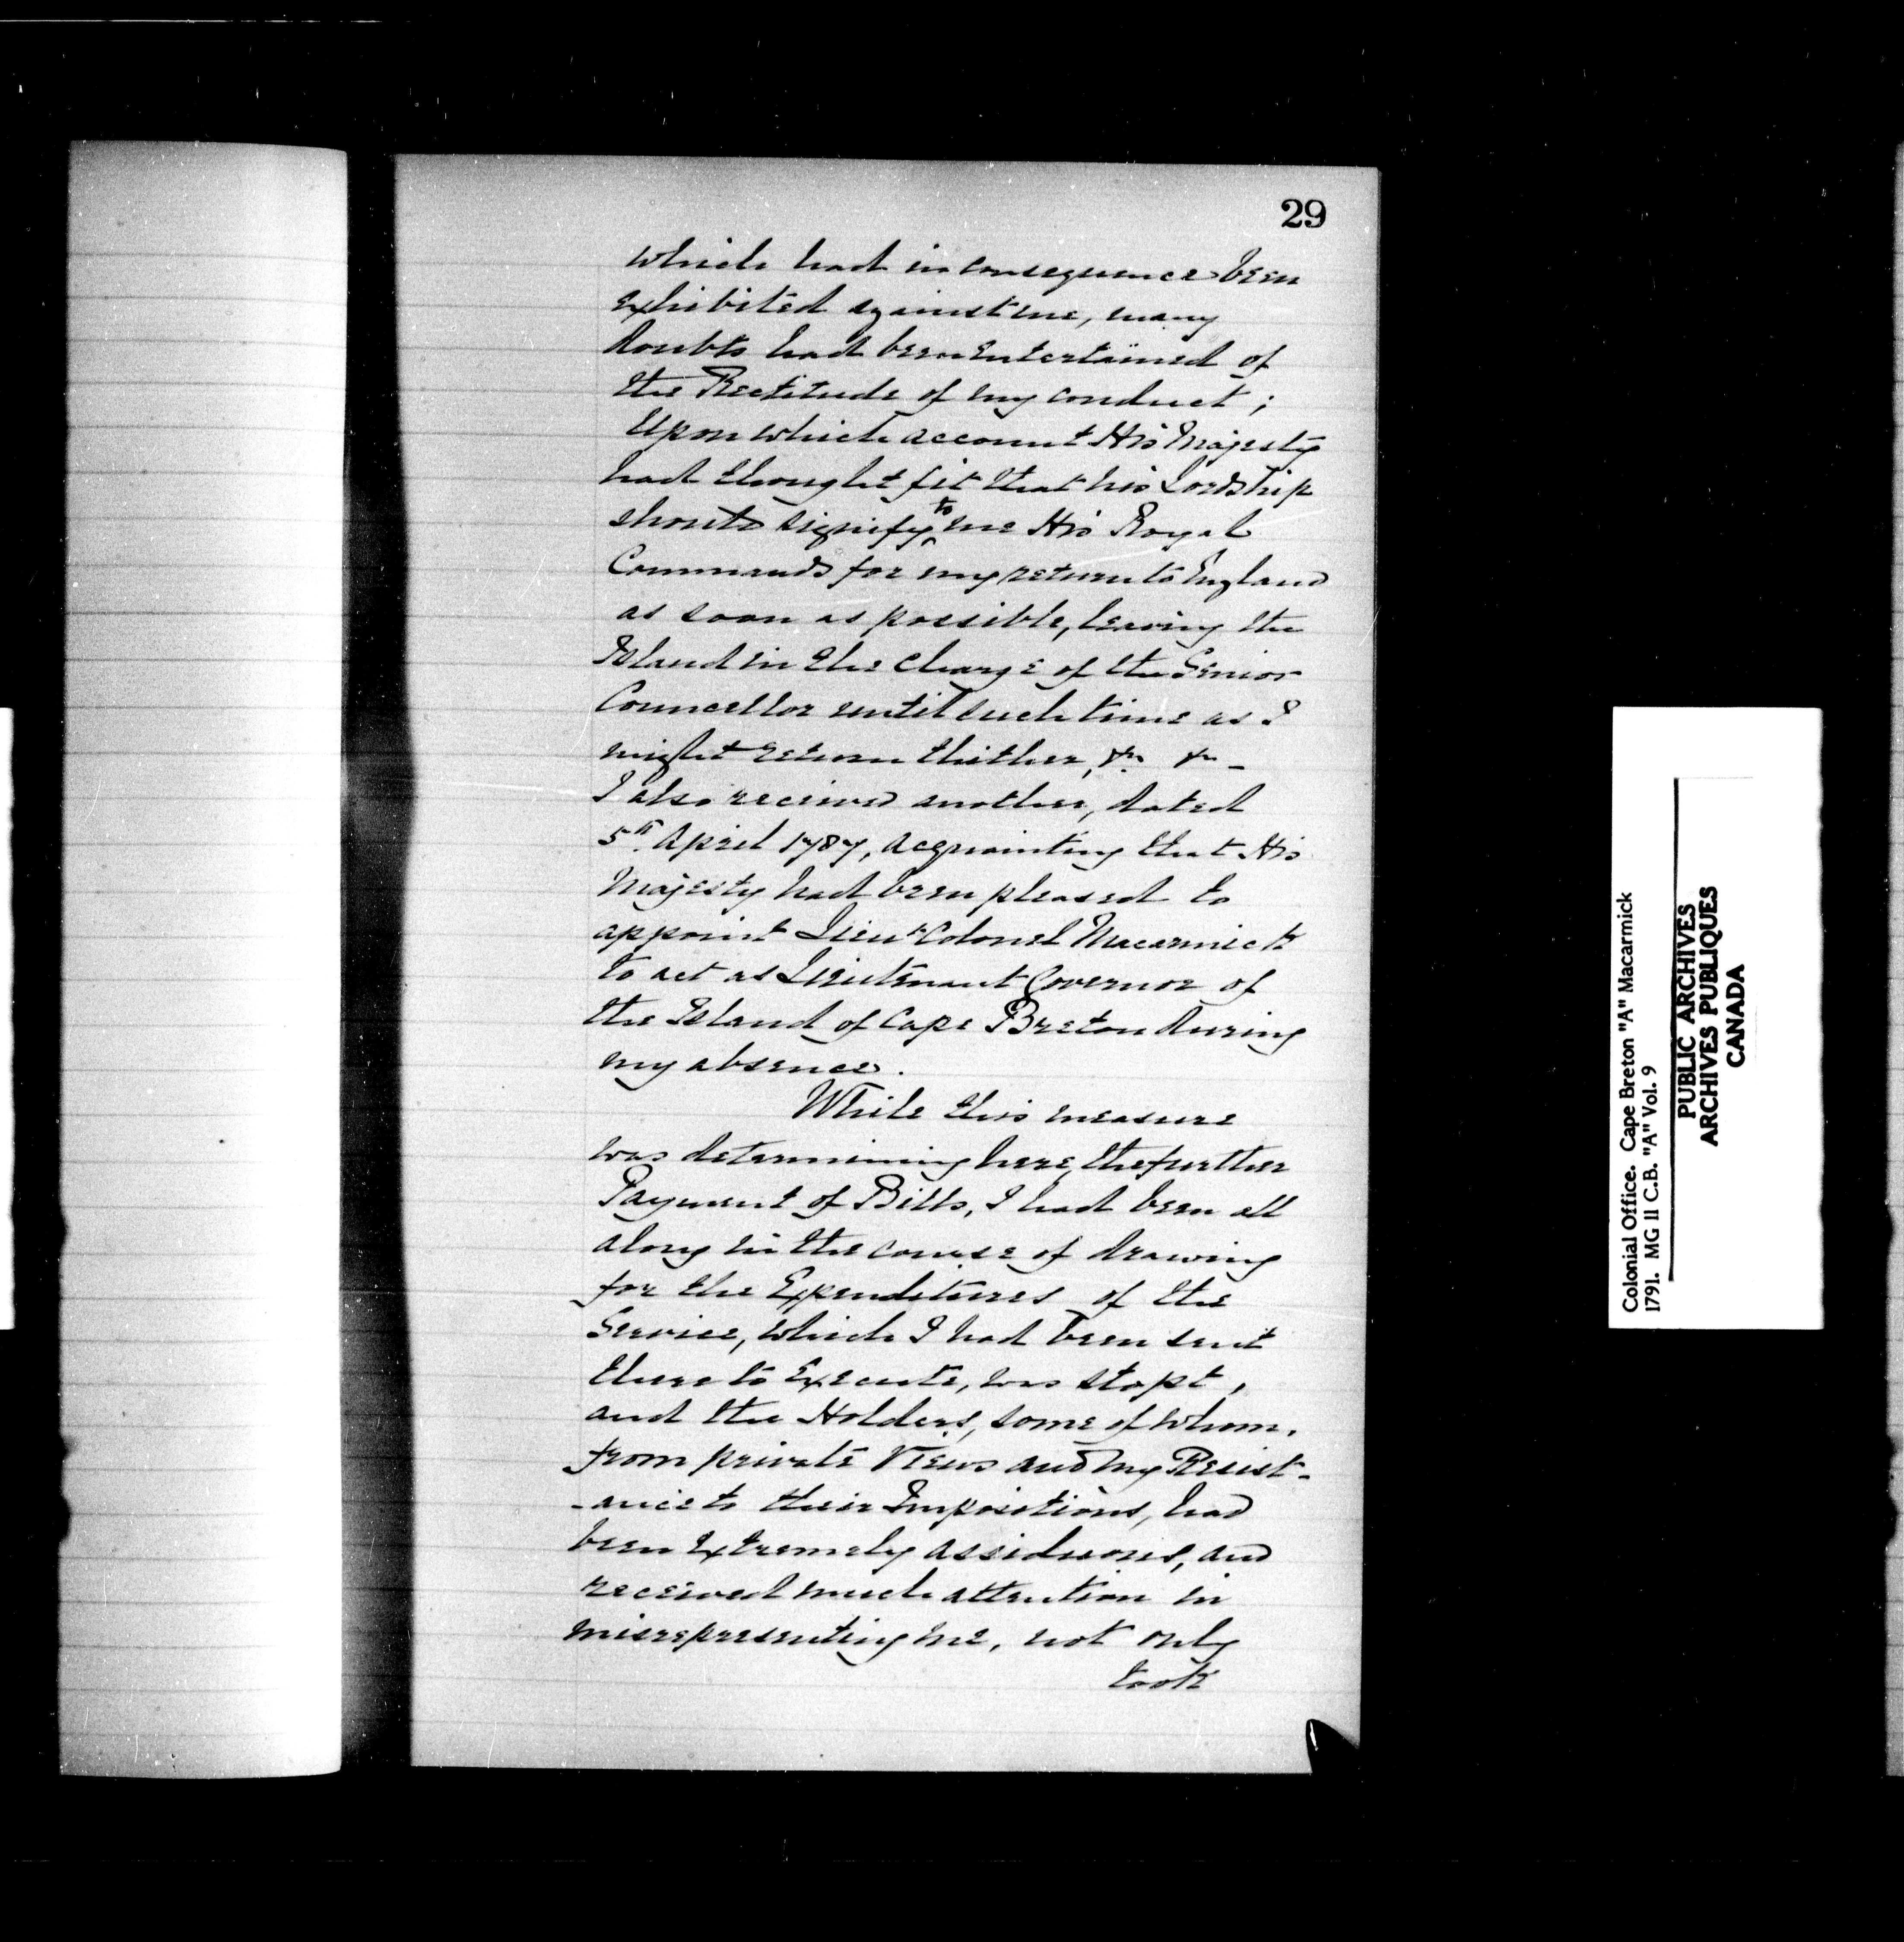 29
which had in consequence been
exhibited against me, many
doubts had been entertained of
the Rectitude of my conduct;
Upon which account His Majesty
had thought fit that his Lordship
should signify to me His Royal
Commands for my return to England
as soon as possible, leaving the
Island in the Charge of the Senior
Councellor until such time as I
might return thither, &c. &c. -
I also received another, dated
5th. April 1787, acquainting that His
Majesty had been pleased to
appoint Lieut Colonel Macarmick
to act as Lieutenant Governor of
the Island of Cape Breton during
my absence.
While this measure
was determining here, the further
Payment of Bills, I had been all
along in the course of drawing
for the Expenditures of the
Service, which I had been sent
there to Execute, was stopt,
and the Holders, some of whom,
from private Views and my Resist-
-ance to their Impositions, had
been extremely assiduous, and
received much attention in
misrepresenting me, not only
took
Colonial Office. Cape Breton "A" Macarmick
1791. MG 11 C.B. "A" Vol. 9
PUBLIC ARCHIVES
ARCHIVES PUBLIQUES
CANADA